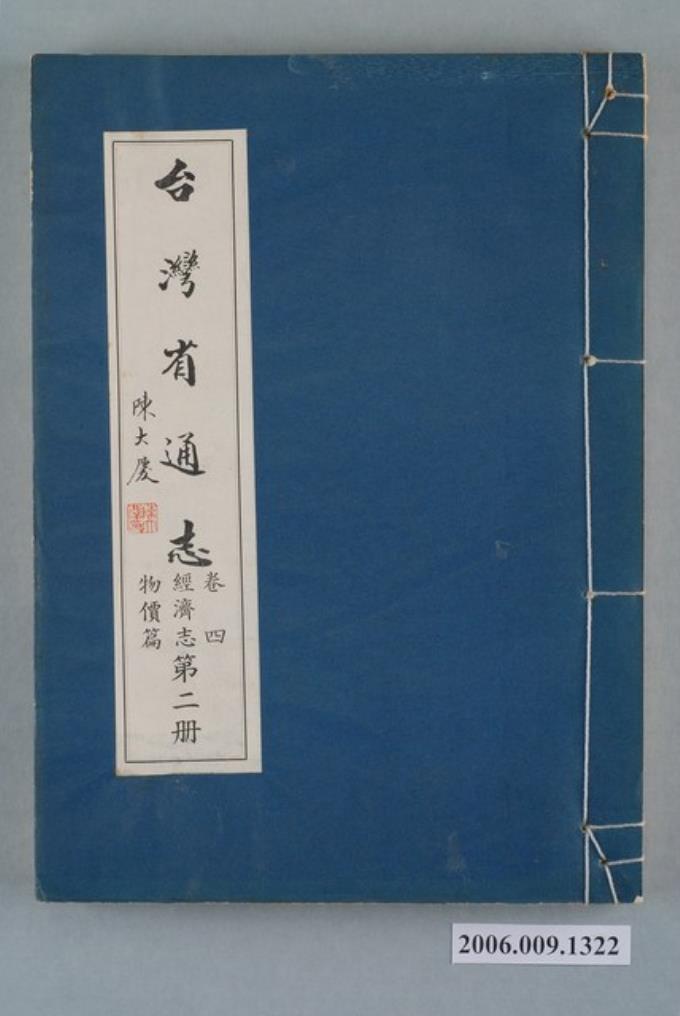 台灣省通志
卷四
經濟志第二册
物價篇
陳大慶
2006.009.1322